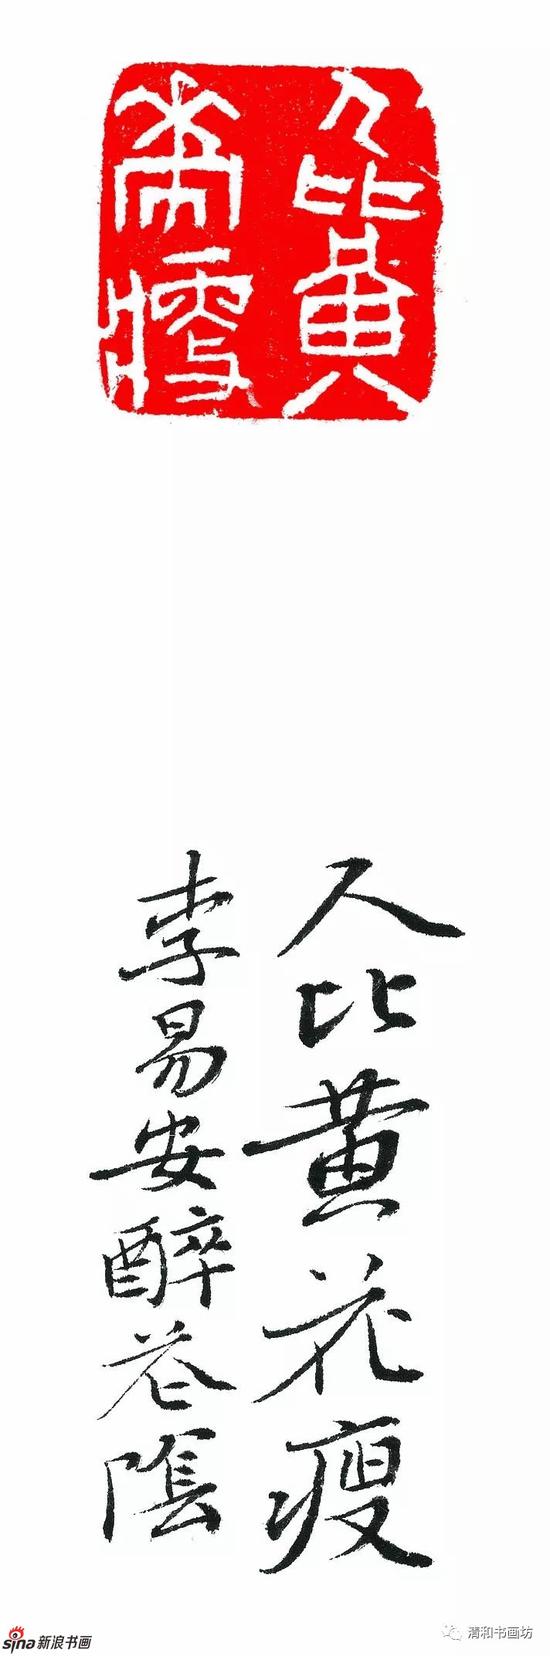 人比黄
花瘦
人比黄花瘦
李易安醉花陰
sina新浪书画
清和书画坊